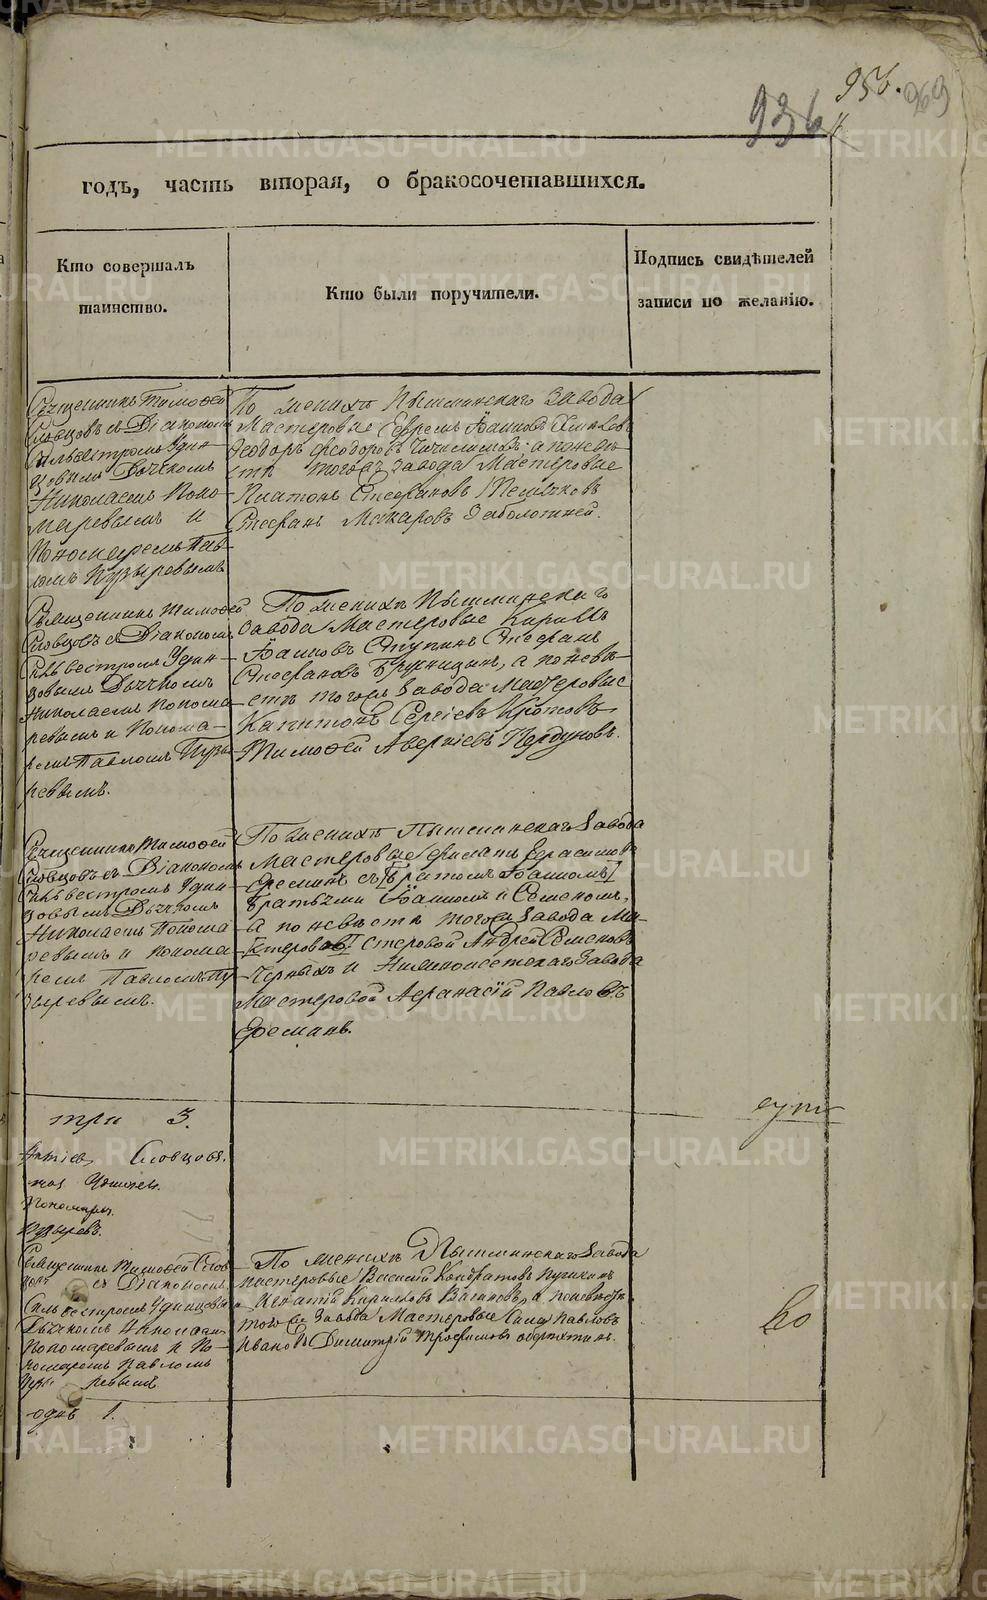 956.
969
936
годъ, часть вторая, о бракосочетавшихся.
Кто совершалъ
таинство.
Кто были поручители.
Подпись свидѣтелей
записи по желанію.
Священникъ Тимофей
Словцовъ съ Діакономъ
Сильвестромъ Удин-
цовымъ Дьячкомъ
Николаемъ Поно-
маревымъ и
Пономаремъ Пав-
ломъ Пузыревымъ
По женихѣ Пышминскаго Завода
Мастеровые Ефремъ Іоанновъ
Феодоръ Феодоровъ а по невѣ-
стѣ тогожъ завода Мастеровые
Платонъ Стефановъ
Стефанъ Макаровъ Заболотней.
Священникъ Тимофей
Словцовъ съ Діакономъ
Сильвестромъ Удин-
цовымъ Дьячкомъ
Николаемъ Понома-
ревымъ и Понома-
ремъ Павломъ Пузы-
ревымъ.
По женихѣ Пышминскаго
Завода Мастеровые Кириллъ
Іоанновъ Ступинъ Стефанъ
Стефановъ Брусницинъ, а по невѣ-
стѣ тогожъ Завода Мастеровые
Капитонъ Сергіевъ Кротовъ
Тимофей Аверкіевъ Пердуновъ.
Священникъ Тимофей
Словцовъ съ Діакономъ
Сильвестромъ Удин-
цовымъ Дьячкомъ
Николаемъ Понома-
ревымъ и понома-
ремъ Павломъ Пу-
зыревымъ.
По женихѣ Пышминскаго Завода
Мастеровые Герасимовъ
Ереминъ съ братомъ Іоанномъ
братьями Іоанномъ и Семеномъ,
а по невѣстѣ тогожъ Завода Ма-
стеровой Андрей Семеновъ
Черныхъ и Нижноисетскаго Завода
Мастеровой Афанасій Павловъ
три 3.
Словцовъ.
Пономарь
Пузыревъ.
Священникъ Тимофей Слов-
цовъ съ Діакономъ
Сильвестромъ Удинцовымъ
Дьячкомъ Николаемъ
Пономаревымъ и По-
номаремъ Павломъ
Пузыревымъ
По женихѣ Пышминскаго Завода
мастеровые Василій Кондратовъ Пучкинъ
Игнатій Кириловъ Вагановъ, а по невѣстѣ
тогожъ Завода Мастеровые Савва Павловъ
Ивановъ Димитрій Трофимовъ
одинъ 1.
METRIKI.GASO-URAL.RU